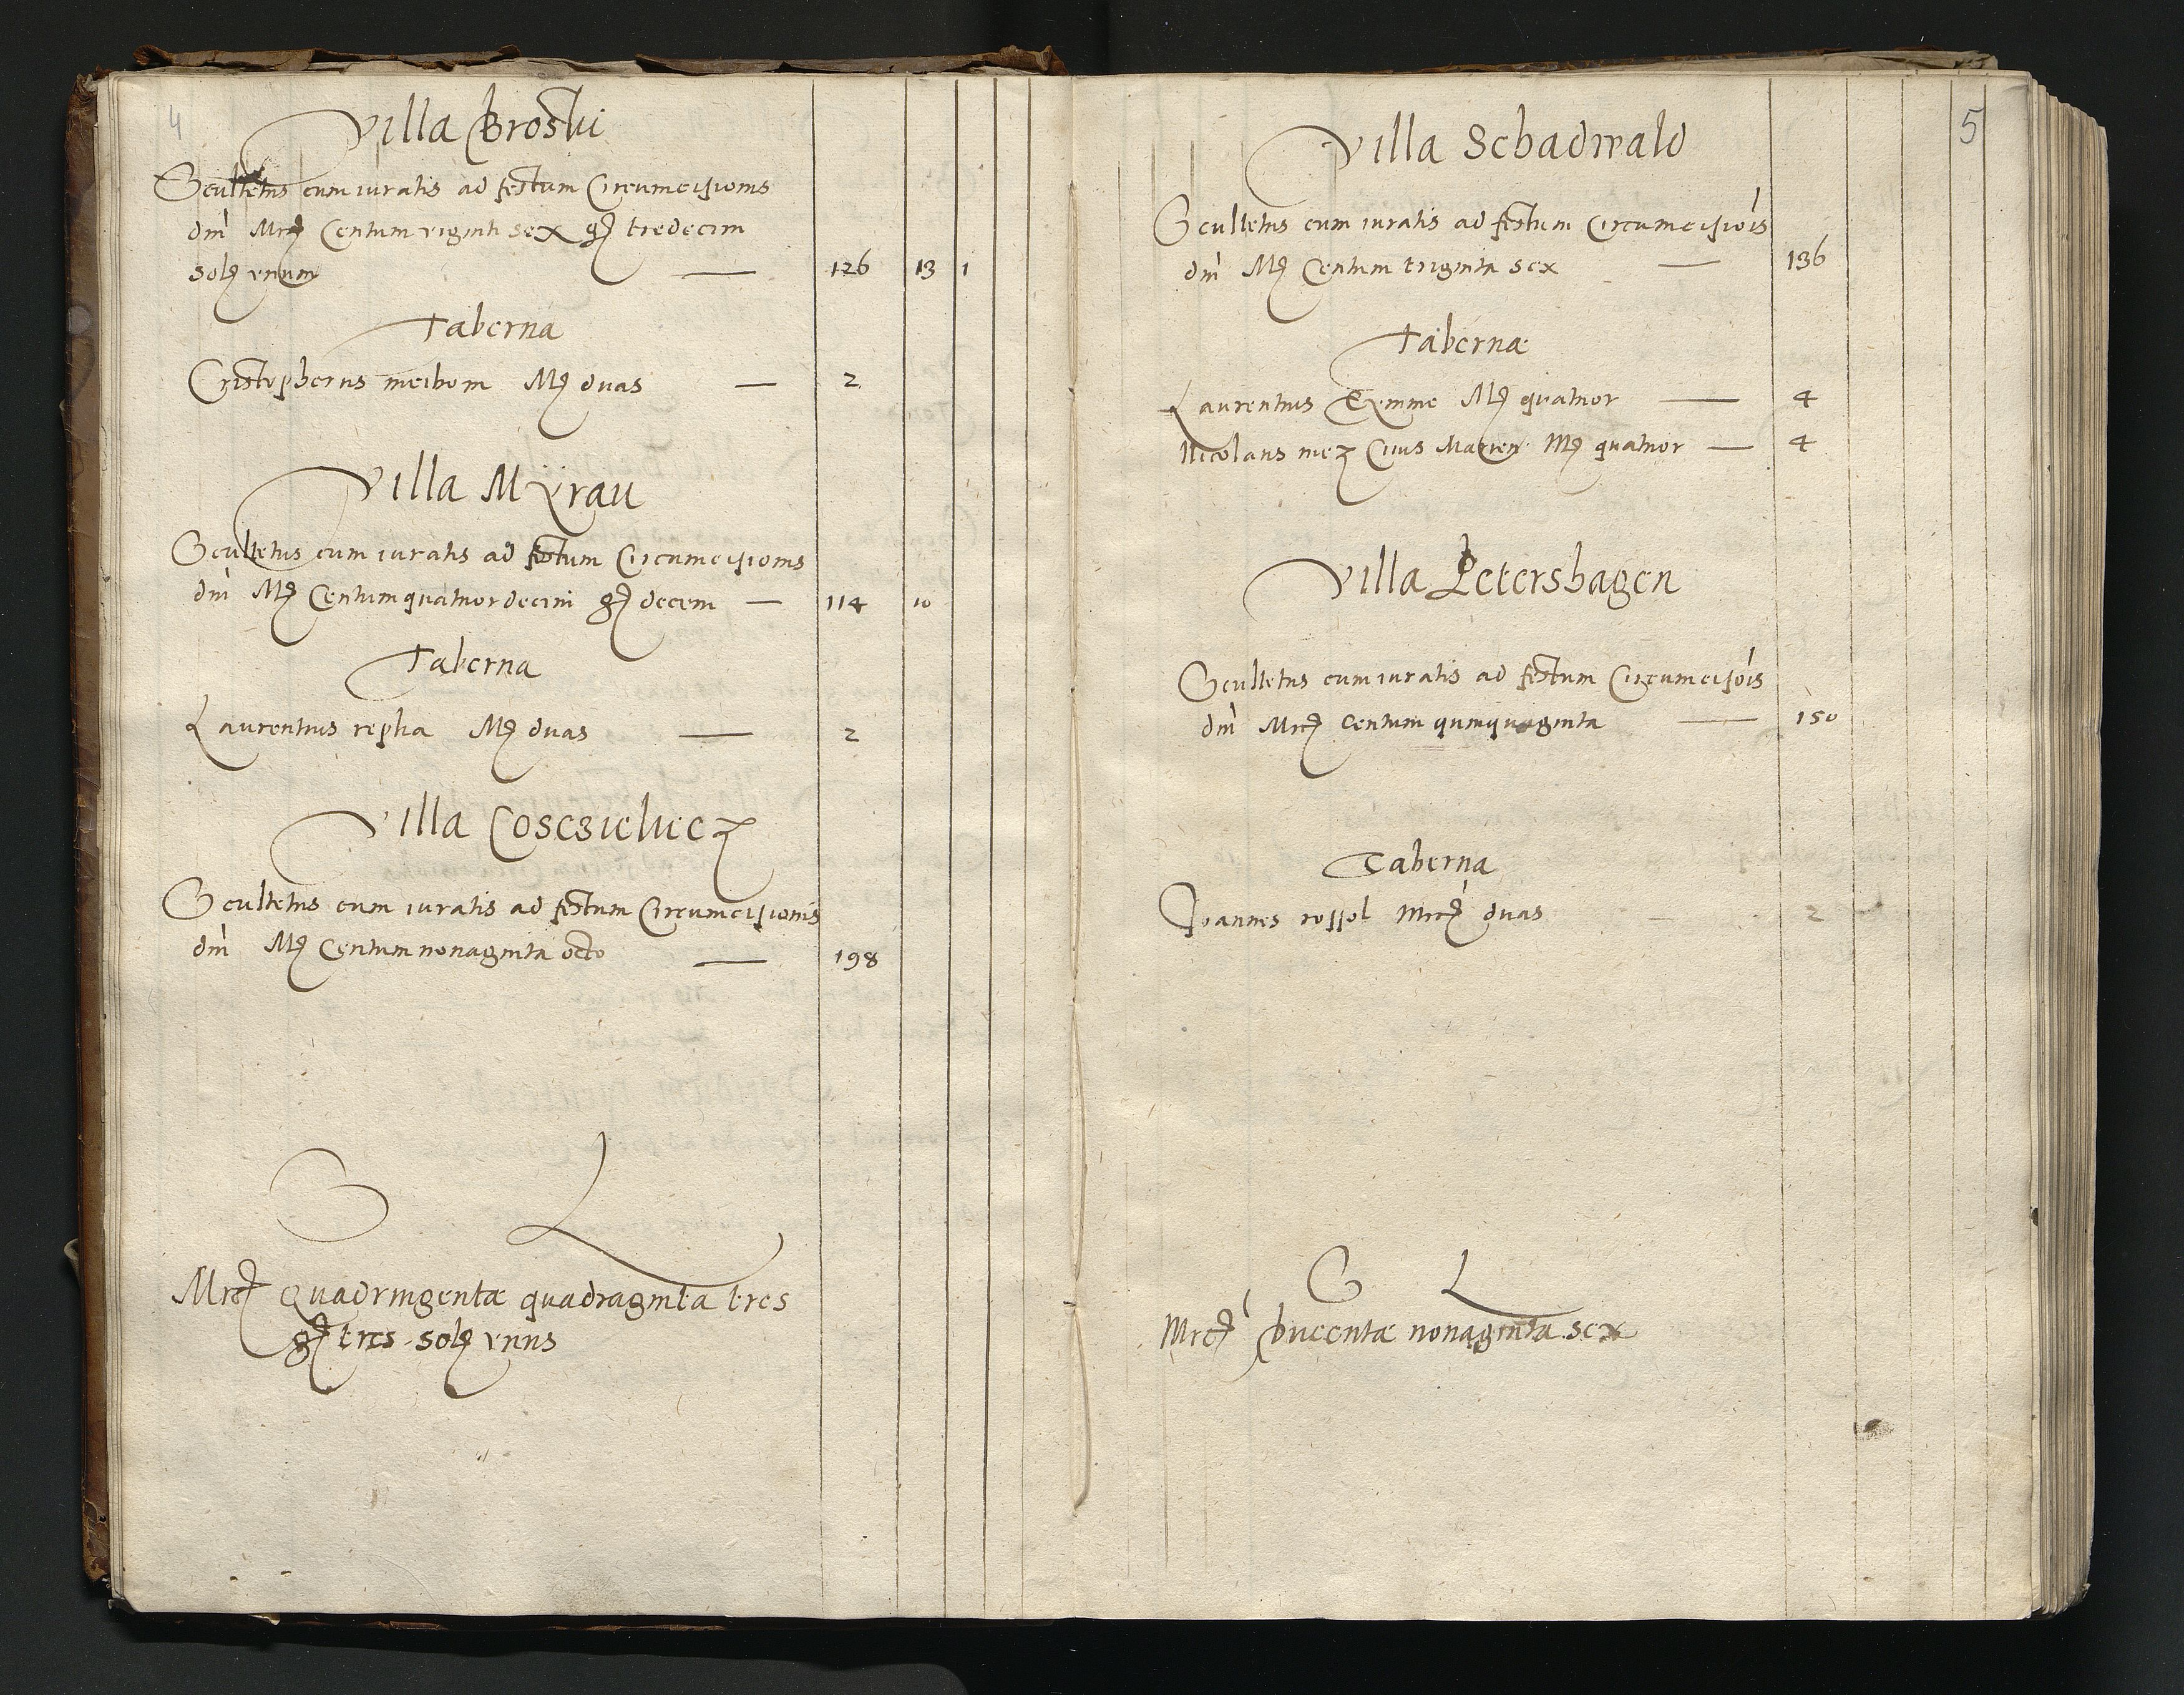 4
Villa Broski
Scultetus cum iuratis ad festum Circumcisionis
dni Mrc Centum viginti sex gr tredecim
solz vnum — 126 13 1
Taberna
Cristopherus meibom Mz duas — 2
Villa Myrau
Scultetus cum iuratis ad festum Circumcisionis
dni Mz Centum quatuordecim gr decem — 114 10
Taberna
Laurentius repha Mz duas — 2
Villa Coscsieliecz
Scultetus cum iuratis ad festum Circumcisionis
dni Mz Centum nonaginta octo — 198
S L
Mrc Quadringentæ quadraginta tres
gr tres solz vnus
5
Villa Schadwald
Scultetus cum iuratis ad festum Circumcisiois
dni Mz Centum triginta sex — 136
Tabernæ
Laurentius Tymme Mz quatuor — 4
Nicolaus mez Ciuis Marien Mz quatuor — 4
Villa Petershagen
Scultetus cum iuratis ad festum Circumcisiois
dni Mrc Centum quinquaginta — 150
Taberna
Joannes rossol Mrc duas — 2
S L
Mrc Ducentæ nonaginta sex